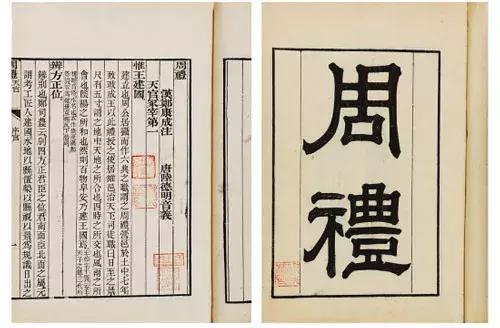 周禮
周禮
漢鄭康成注　唐陸德明音義
天官冢宰第一
惟王建國
建立也周公居攝而作六典之職謂之周禮營邑於土中七年
致政成王以此禮授之使居雒邑治天下司徒職曰日至之景
尺有五寸謂之地中天地之所合也四時之所交也風雨之所
會也陰陽之所和也然則百物阜安乃建王國焉
辨方正位
辨別也鄭司農云別四方正君臣之位君南面臣北面之屬玄
謂考工匠人建國水地以縣置槷以縣視以景為規識日出之
周禮 天官